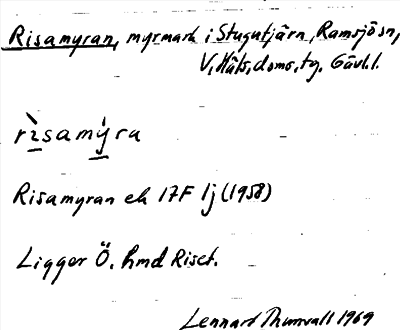 Risamyran, myrmark i Stugutjärn, Ramsjö sn,
V. Häls. doms. tg. Gävl. l.
rìsamy̓ra
Risamyran ek 17F Ij (1958)
Ligger Ö. hmd Riset.
Lennart Thunvall 1969